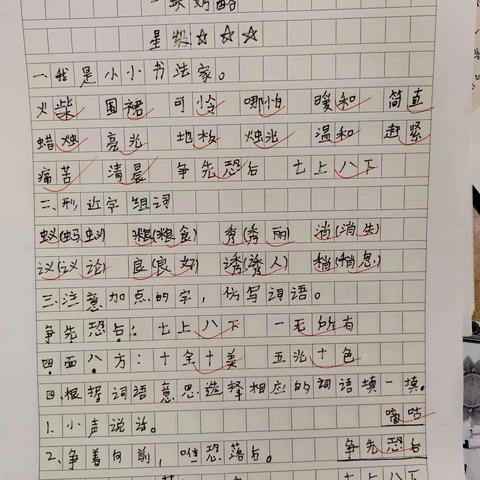 一块奶酪
星级☆☆☆
一.我是小小书法家。
火柴 围裙 可怜 哪怕 暖和 简直
蜡烛 亮光 地板 烛光 温和 赶紧
痛苦 清晨 争先恐后 七上八下
二、形近字组词
蚁(蚂蚁) 粮(粮食) 秀(秀丽) 消(消失)
议(议论) 良(良好) 诱(诱人) 稍(稍息)
三.注意加点的字，仿写词语。
争先恐后：七上八下 一无所有
四面八方：十全十美 五光十色
四.根据词语意思选择相应的词语填一填。
1.小声说话。 嘀咕
2、争着向前，唯恐落后。 争先恐后
七上八下